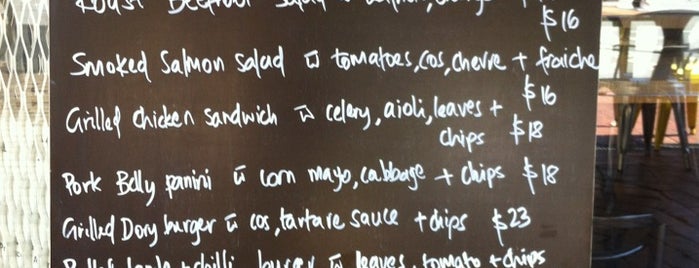 Roast Beetroot Salad
$16
Smoked Salmon Salad w̄ tomatoes, cos, chevre + fraiche
$16
Grilled Chicken Sandwich w̄ celery, aioli, leaves +
chips $18
Pork Belly panini w̄ corn mayo, cabbage + chips $18
Grilled Dory burger w̄ cos, tartare sauce + chips $23
Pulled lamb + chilli burger w̄ leaves, tomato + chips